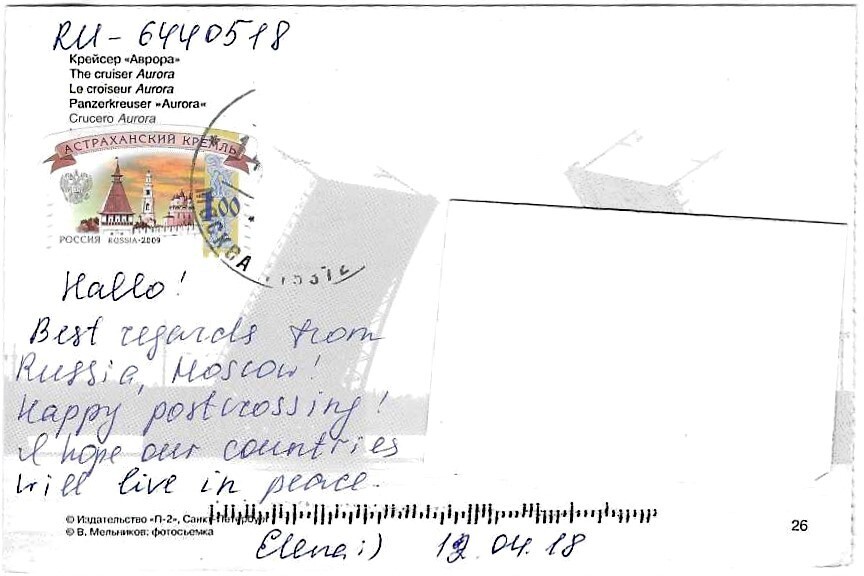 RU-6440518
Крейсер «Аврора»
The cruiser Aurora
Le croiseur Aurora
Panzerkreuser »Aurora«
Crucero Aurora
АСТРАХАНСКИЙ КРЕМЛЬ
РОССИЯ ROSSIA-2009
МОСКВА
Hallo!
Best regards from
Russia, Moscow!
Happy postcrossing!
I hope our countries
will live in peace.
© Издательство «П-2», Санкт-Петербург
© В. Мельников: фотосъемка
26
Elena:) 12.04.18